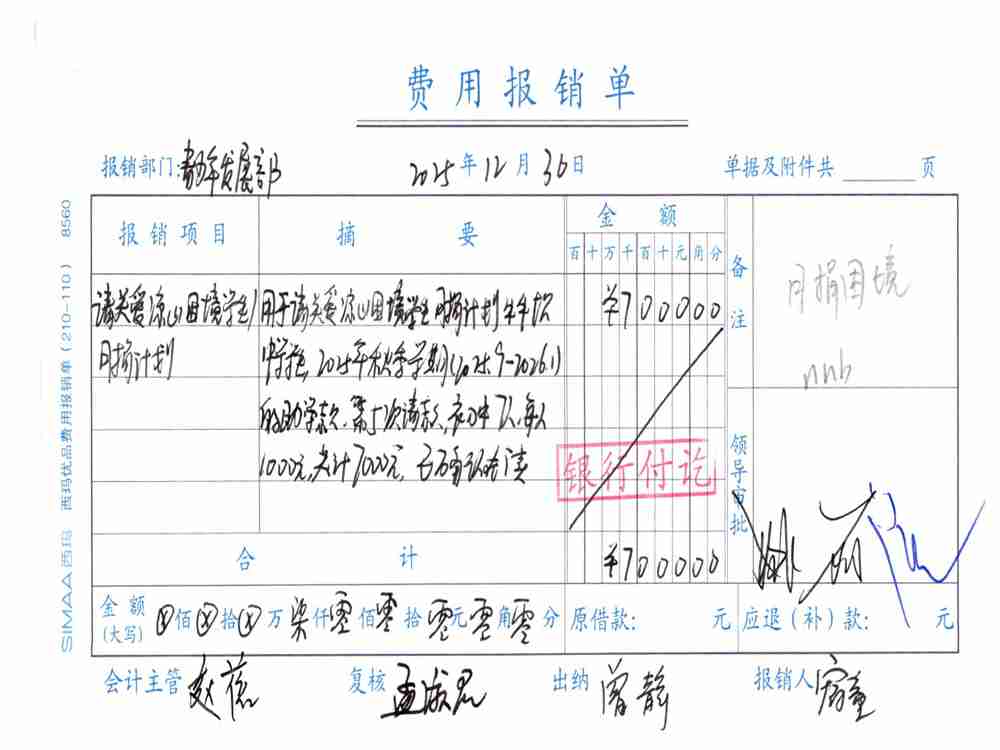 费用报销单
报销部门: 发展部 2025年12月30日 单据及附件共 页
报销项目 摘要 金额 备注
百十万千百十元角分
请关爱凉山困境学生 用于请关爱凉山困境学生月捐计划 ¥700000 月捐困境
月捐计划 中学 2025年秋季学期(2025.9-2026.1)
的助学款,第5次请款,初中7人,每人
1000元,共计7000元,
银行付讫
领导审批
合计 ¥700000
金额(大写) ⊗佰⊗拾⊗万柒仟零佰零拾零元零角零分 原借款: 元 应退(补)款: 元
会计主管 赵蓓 复核 孟淑君 出纳 曾静 报销人
SIMAA西玛 西玛优品费用报销单(210-110) 8560